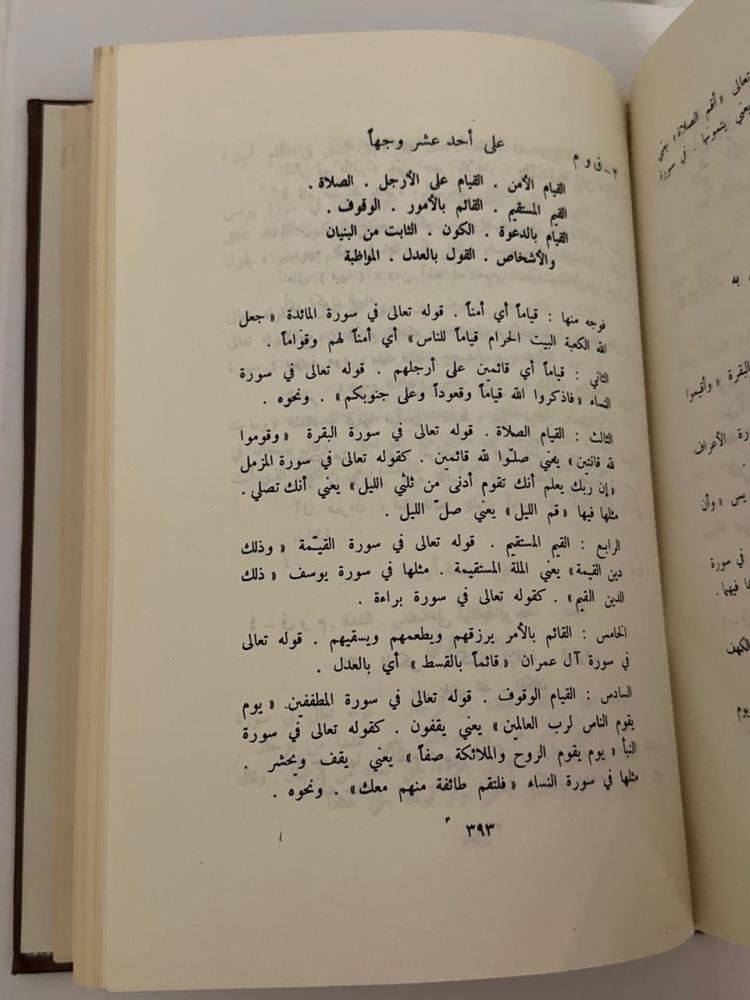 ٣ - ق و م
على أحد عشر وجهاً
القيام الأمن . القيام على الأرجل . الصلاة .
القيم المستقيم . القائم بالأمور . الوقوف .
القيام بالدعوة . الكون . الثابت من البنيان
والأشخاص . القول بالعدل . المواظبة
فوجه منها : قياماً أي أمناً . قوله تعالى في سورة المائدة «جعل
الله الكعبة البيت الحرام قياماً للناس» أي أمناً لهم وقواماً .
الثاني : قياماً أي قائمين على أرجلهم . قوله تعالى في سورة
النساء «فاذكروا الله قياماً وقعوداً وعلى جنوبكم» . ونحوه .
الثالث : القيام الصلاة . قوله تعالى في سورة البقرة «وقوموا
لله قانتين» يعني صلّوا لله قائمين . كقوله تعالى في سورة المزمل
«إن ربك يعلم أنك تقوم أدنى من ثلثي الليل» يعني أنك تصلي .
مثلها فيها «قم الليل» يعني صلّ الليل .
الرابع : القيم المستقيم . قوله تعالى في سورة القيّمة «وذلك
دين القيمة» يعني الملة المستقيمة . مثلها في سورة يوسف «ذلك
الدين القيم» . كقوله تعالى في سورة براءة .
الخامس : القائم بالأمر يرزقهم ويطعمهم ويسقيهم . قوله تعالى
في سورة آل عمران «قائماً بالقسط» أي بالعدل .
السادس : القيام الوقوف . قوله تعالى في سورة المطففين «يوم
يقوم الناس لرب العالمين» يعني يقفون . كقوله تعالى في سورة
النبأ «يوم يقوم الروح والملائكة صفاً» يعني يقف ويحشر .
مثلها في سورة النساء «فلتقم طائفة منهم معك» . ونحوه .
٣٩٣
تعالى «أقم الصلاة» يعني
يعني يتمونها . في سورة
به
البقرة «وأقيموا
رة الأعراف
يس «وأن
في سورة
ا فيهما .
الكهف
يوم